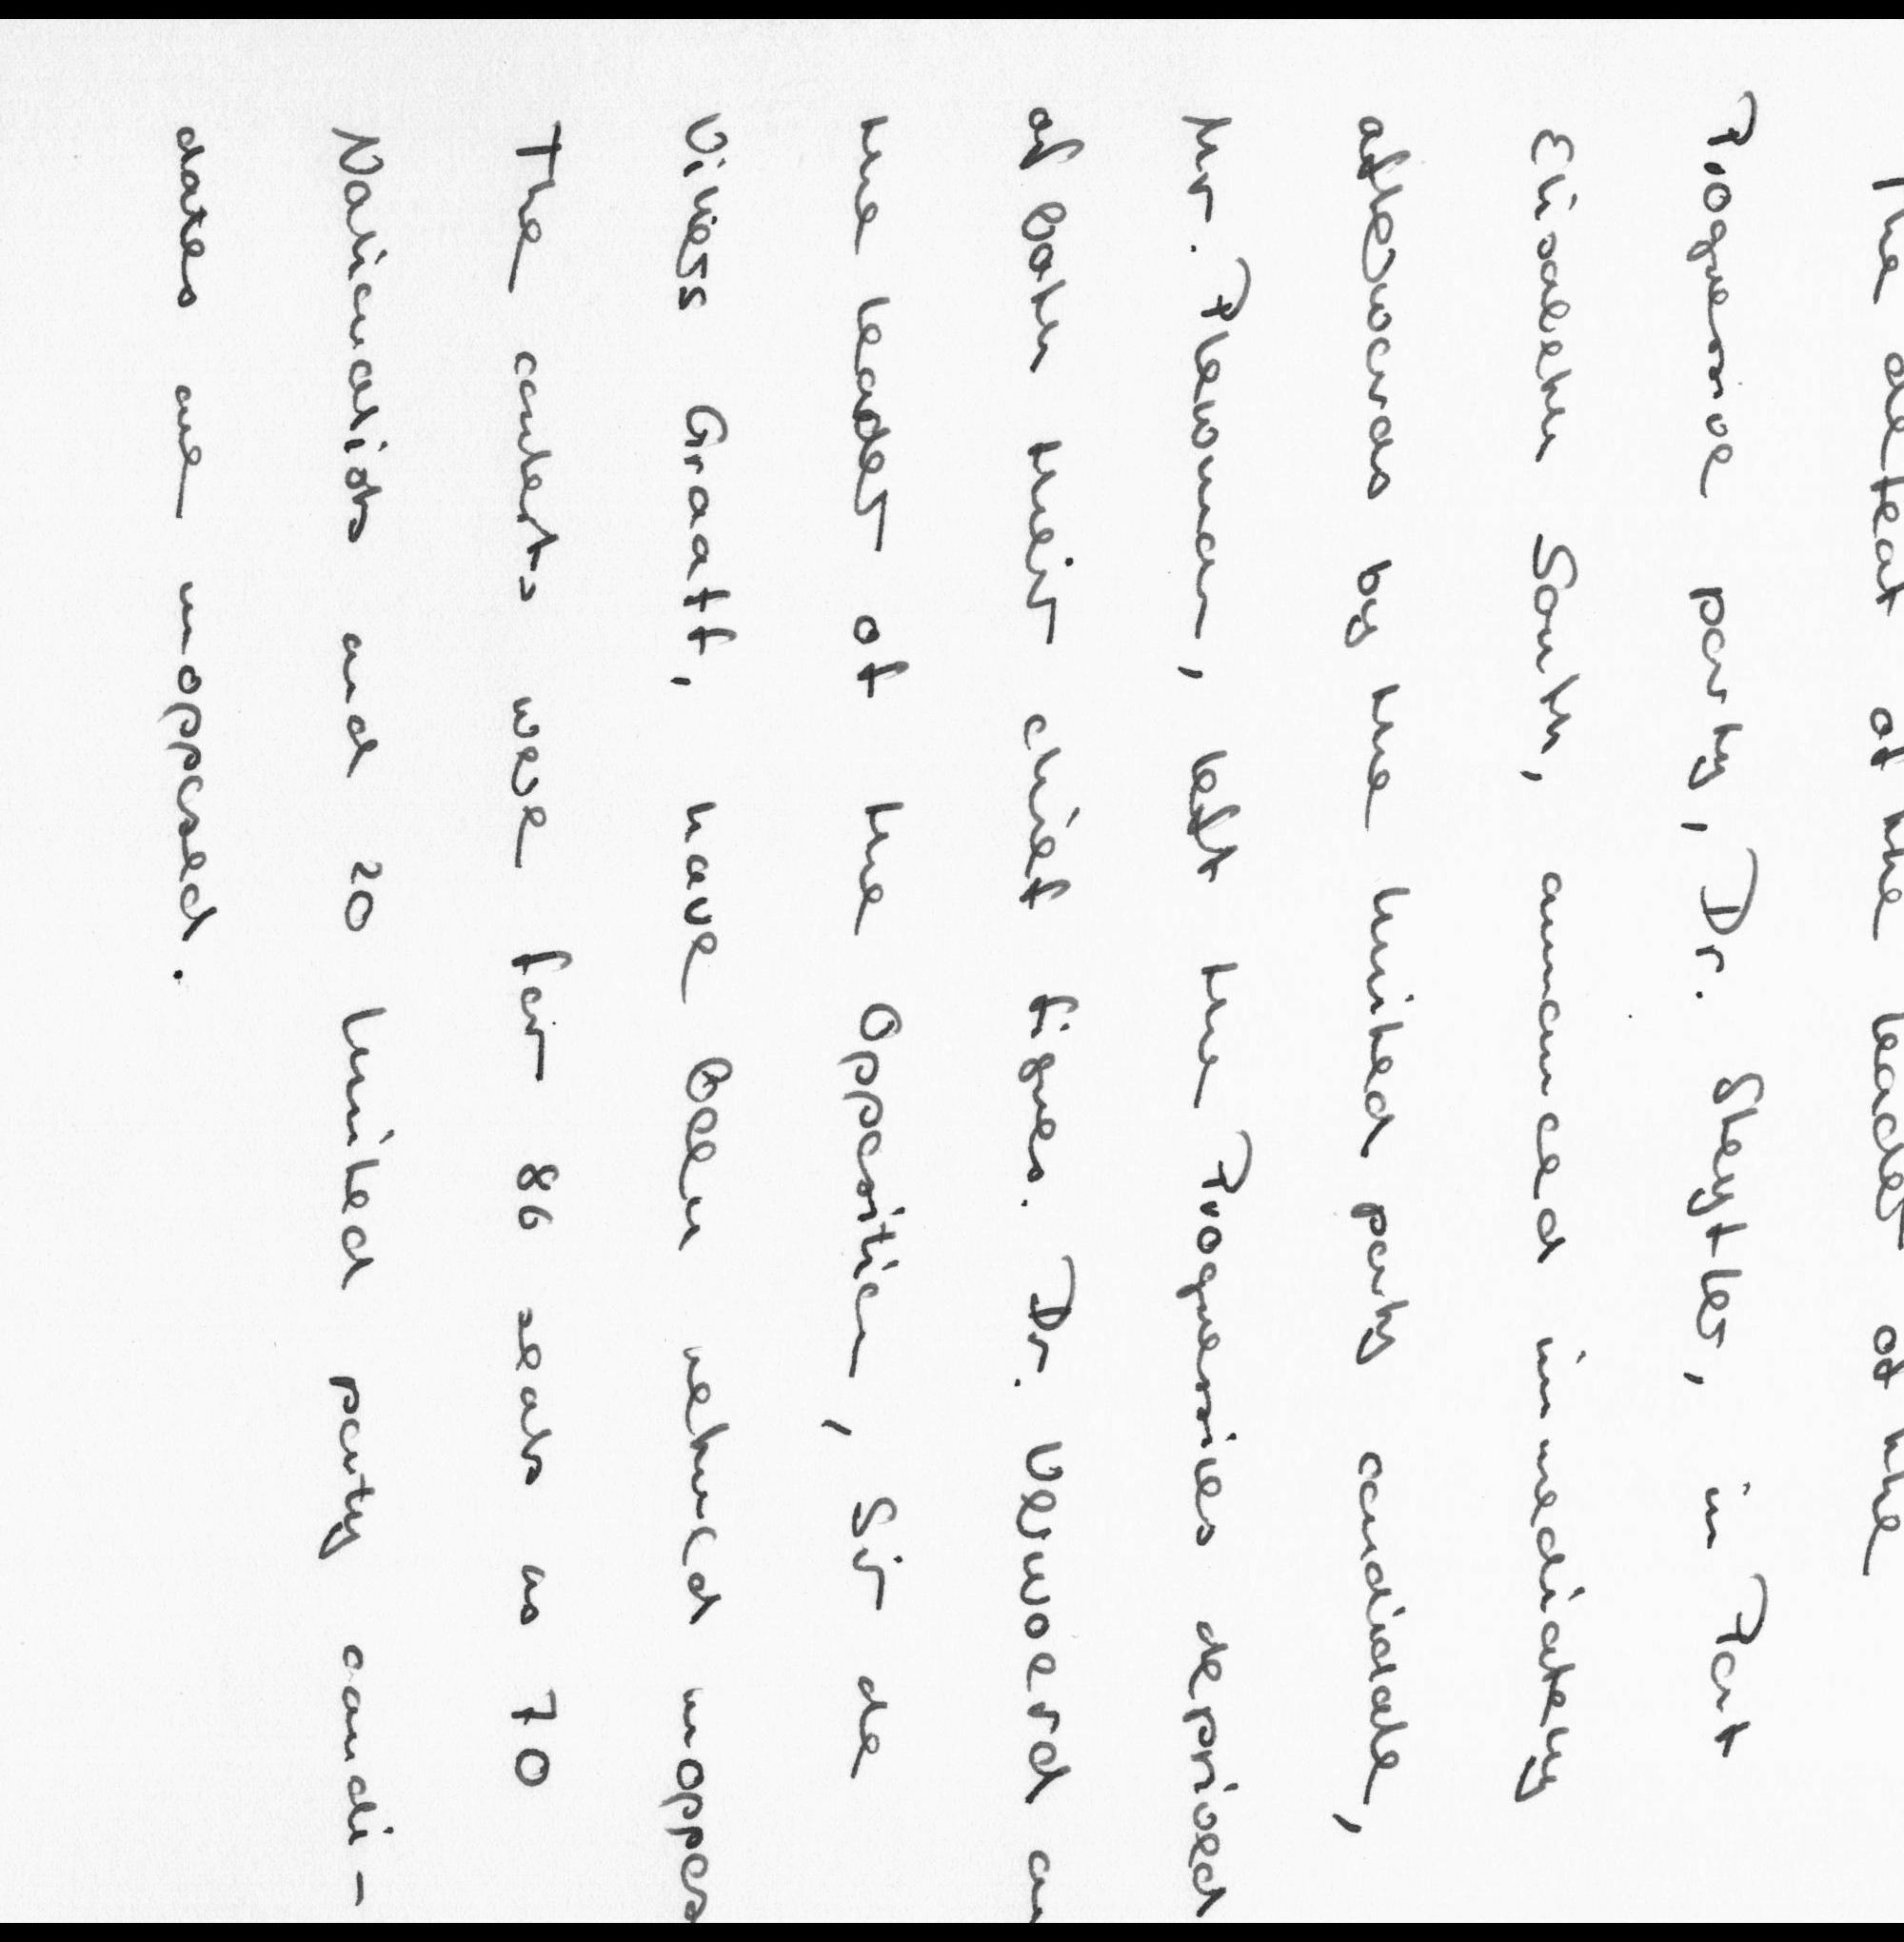 The defeat of the leader of the
Progressive party, Dr. Steytler, in Port
Elisabeth South, announced immediately
afterwards by the United party candidate,
Mr. Plewman, left the Progressives deprived
of both their chief figures. Dr. Verwoerd an
the leader of the Opposition, Sir de
Villiers Graaff, have been returned unoppos
The contests were for 86 seats as 70
Nationalists and 20 United party candi-
dates are unopposed.